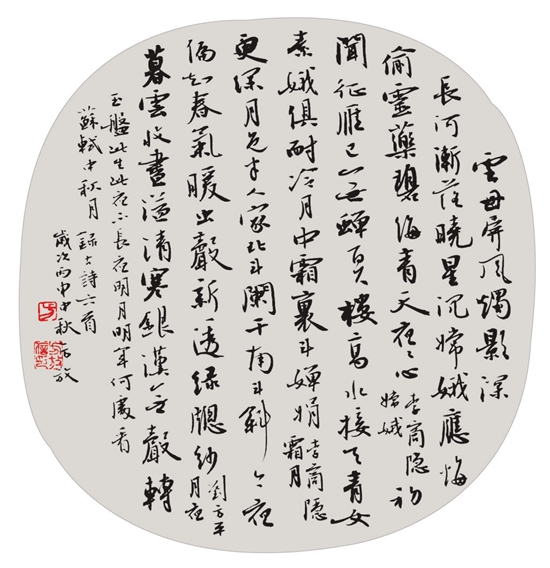 雲母屏風燭影深
長河漸落曉星沉嫦娥應悔
偷靈藥碧海青天夜夜心 李商隐
嫦娥
初
聞征雁已無蟬百尺樓高水接天青女
素娥俱耐冷月中霜裏斗嬋娟 李商隐
霜月
更深月色半人家北斗闌干南斗斜今夜
偏知春氣暖虫聲新透綠窗紗 劉方平
月夜
暮雲收盡溢清寒銀漢無聲轉
玉盤此生此夜不長好明月明年何處看
蘇軾中秋月 錄古詩六首
歲次丙申中秋